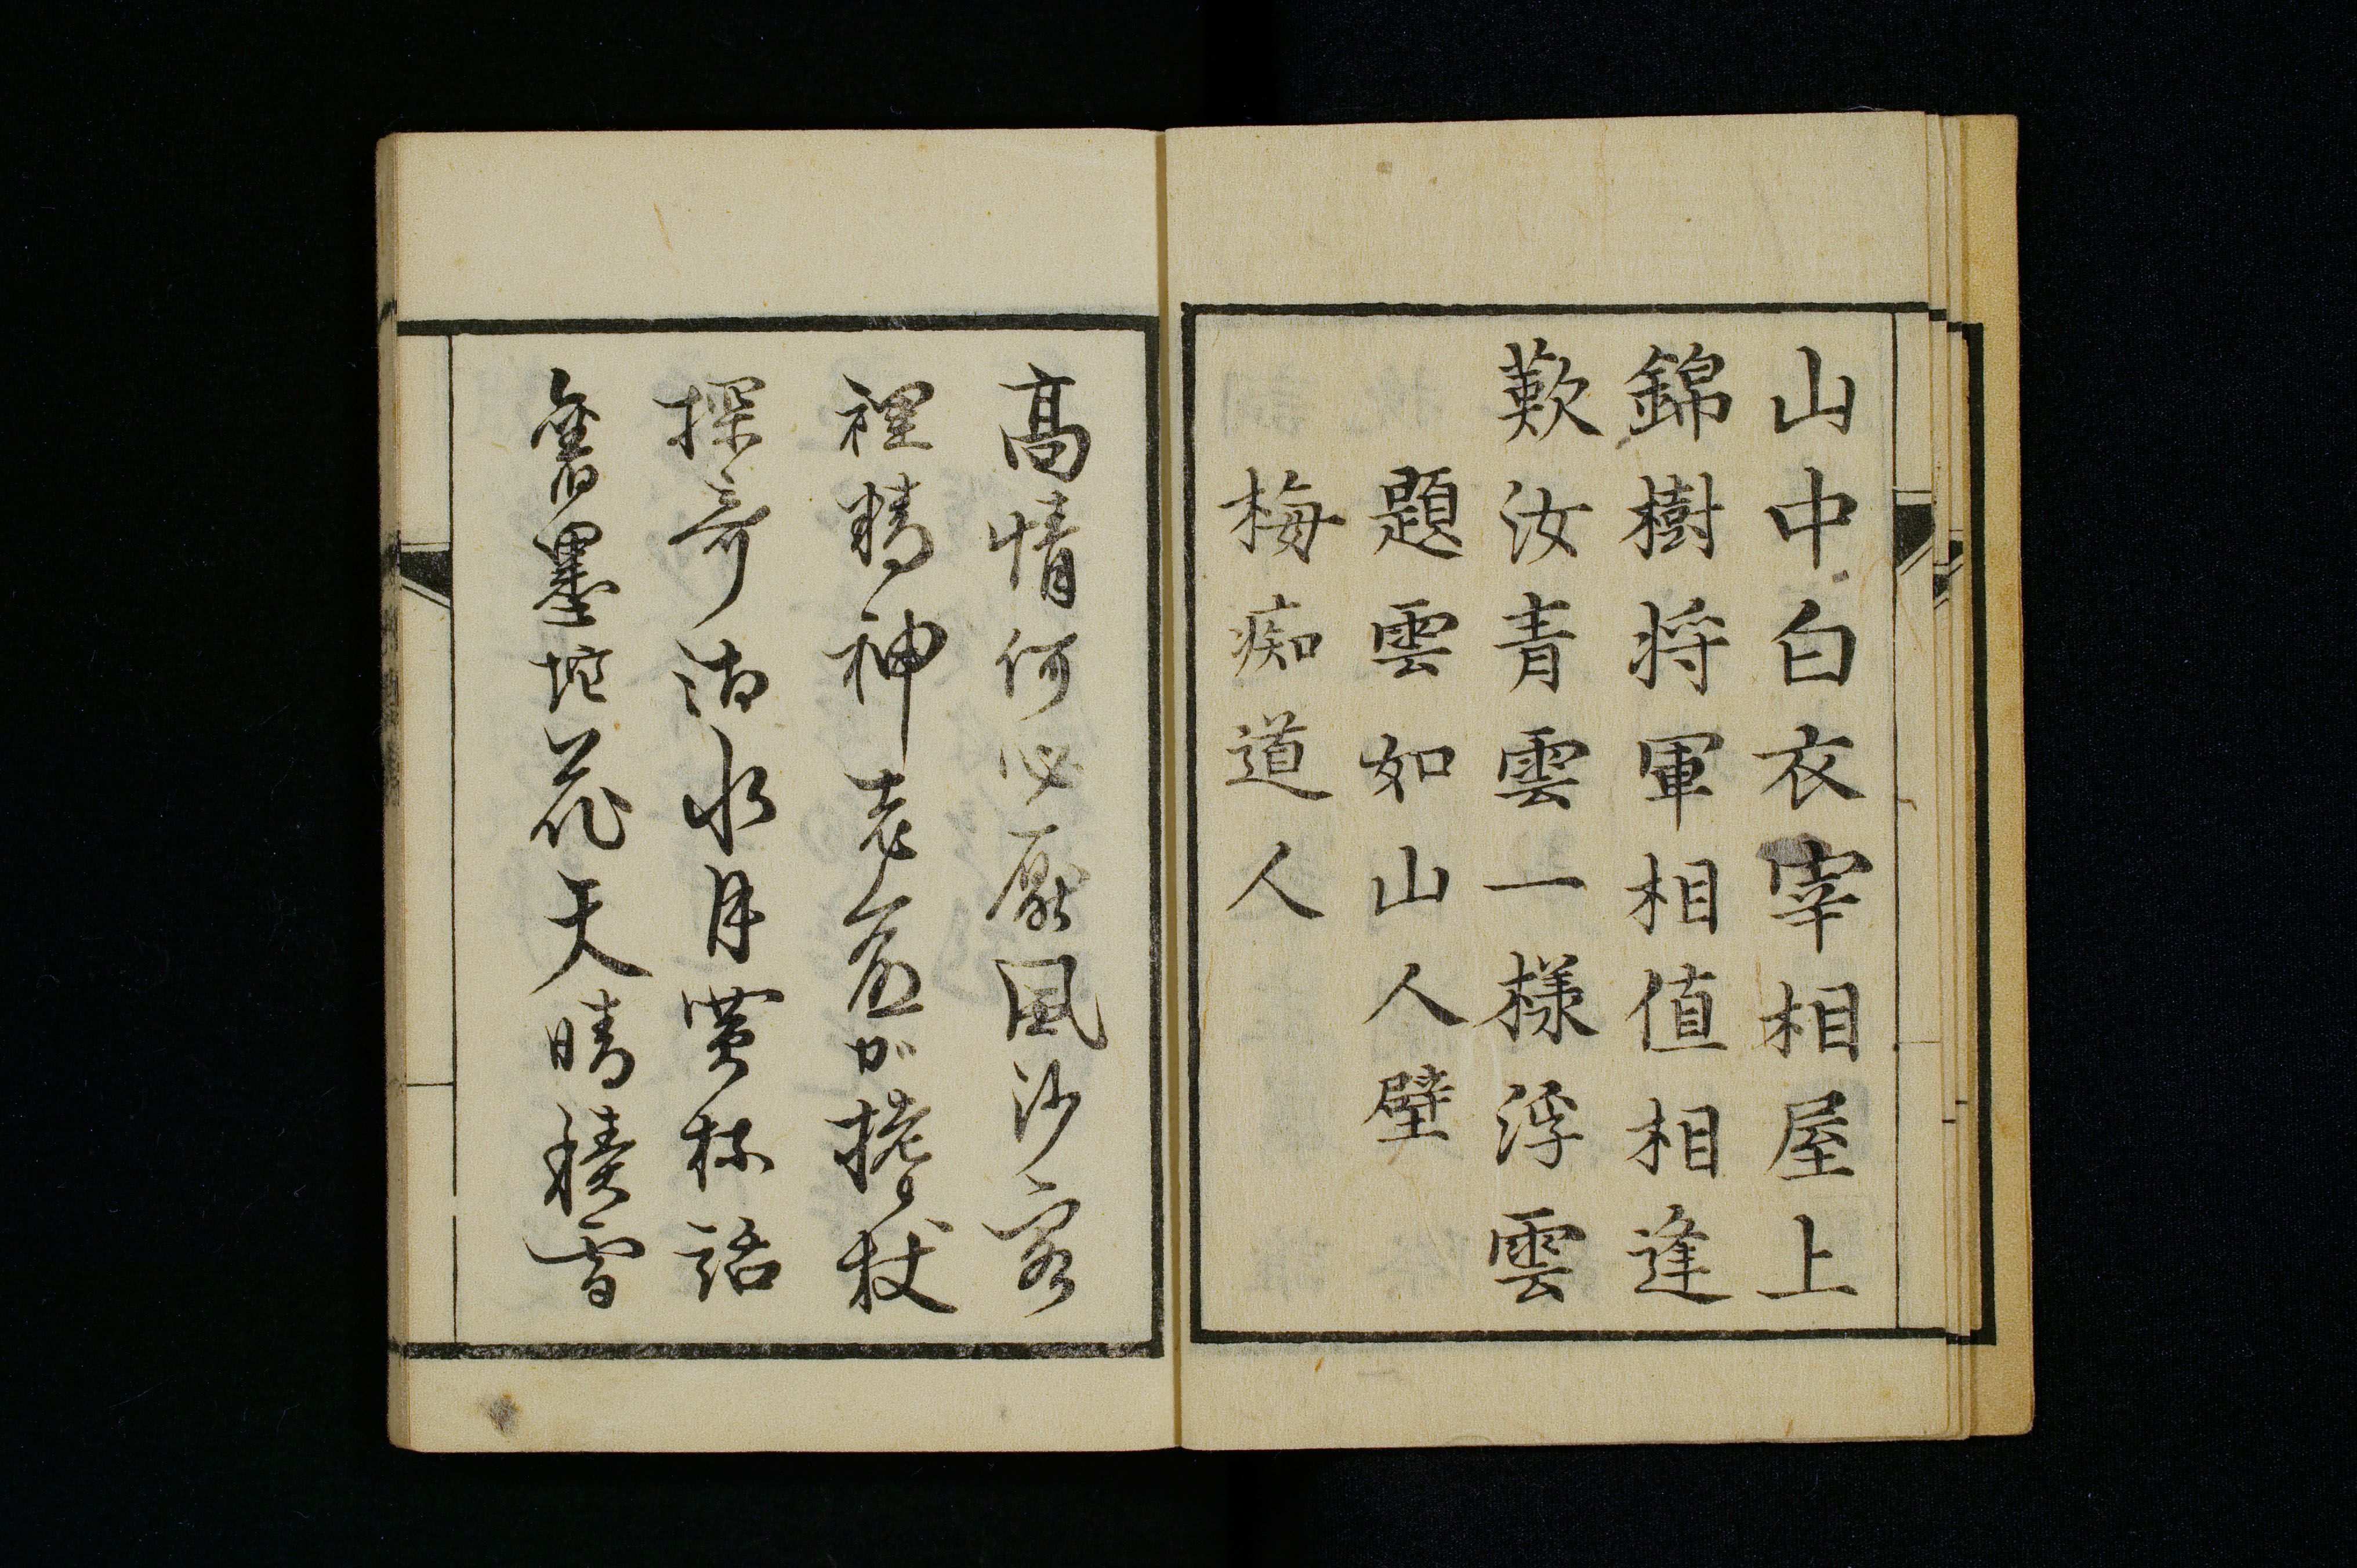 山中白衣宰相屋上
錦樹将軍相値相逢
歎汝青雲一様浮雲
題雲如山人壁
梅痴道人
高情何必厭風沙客
裡精神老益加携杖
探奇湖水月杯話
舊墨坨花天晴積雪